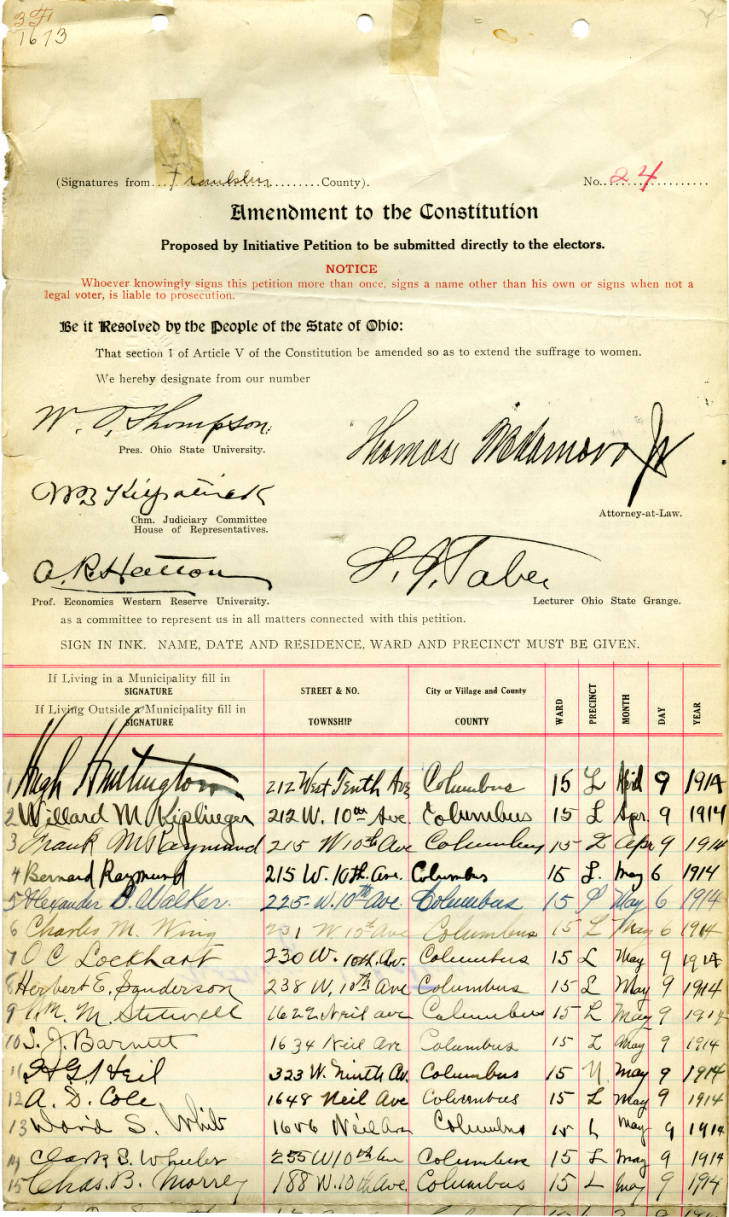 1613
(Signatures from...Franklin..........County).
No...24..................
Amendment to the Constitution
Proposed by Initiative Petition to be submitted directly to the electors.
NOTICE
Whoever knowingly signs this petition more than once, signs a name other than his own or signs when not a
legal voter, is liable to prosecution.
Be it Resolved by the People of the State of Ohio:
That section 1 of Article V of the Constitution be amended so as to extend the suffrage to women.
We hereby designate from our number
W. O. Thompson.
Pres. Ohio State University.
Thomas Jr
Attorney-at-Law.
WB Kilpatrick
Chm. Judiciary Committee
House of Representatives.
A. R. Hatton
Prof. Economics Western Reserve University.
L. J. Taber
Lecturer Ohio State Grange.
as a committee to represent us in all matters connected with this petition.
SIGN IN INK. NAME, DATE AND RESIDENCE, WARD AND PRECINCT MUST BE GIVEN.
If Living in a Municipality fill in
SIGNATURE
STREET & NO.
City or Village and County
If Living Outside a Municipality fill in
SIGNATURE
TOWNSHIP
COUNTY
WARD
PRECINCT
MONTH
DAY
YEAR
1 Hugh Huntington 212 West Tenth Ave Columbus 15 L 9 1914
2 Willard M Kiplinger 212 W. 10th Ave. Columbus 15 L Apr. 9 1914
3 Frank M Raymund 215 W 10th Ave Columbus 15 L Apr 9 1914
4 Bernard Raymund 215 W. 10th. Ave. Columbus 15 L. May 6 1914
5 Alexander Walker. 225 W. 10th Ave Columbus 15 May 6 1914
6 Charles M. Wing 231 W 10th Ave Columbus 15 L May 6 1914
7 O C Lockhart 230 W. 10th Av. Columbus 15 L May 9 1914
8 Herbert E. Sanderson 238 W. 10th Ave Columbus 15 L May 9 1914
9 M. Stilwell 1622 Neil ave Columbus 15 L May 9 1914
10 S. J. Barnett 1634 Neil Ave Columbus 15 L May 9 1914
11 Heil 323 W. Ninth Av. Columbus 15 N. May 9 1914
12 A. D. Cole 1648 Neil Ave Columbus 15 L May 9 1914
13 David S. White Neil Ave Columbus 15 L May 9 1914
14 Clark B. Wheeler 255 W 10th Ave Columbus 15 L May 9 1914
15 Chas. B. Morrey 188 W. 10th Ave. Columbus 15 L May 9 194